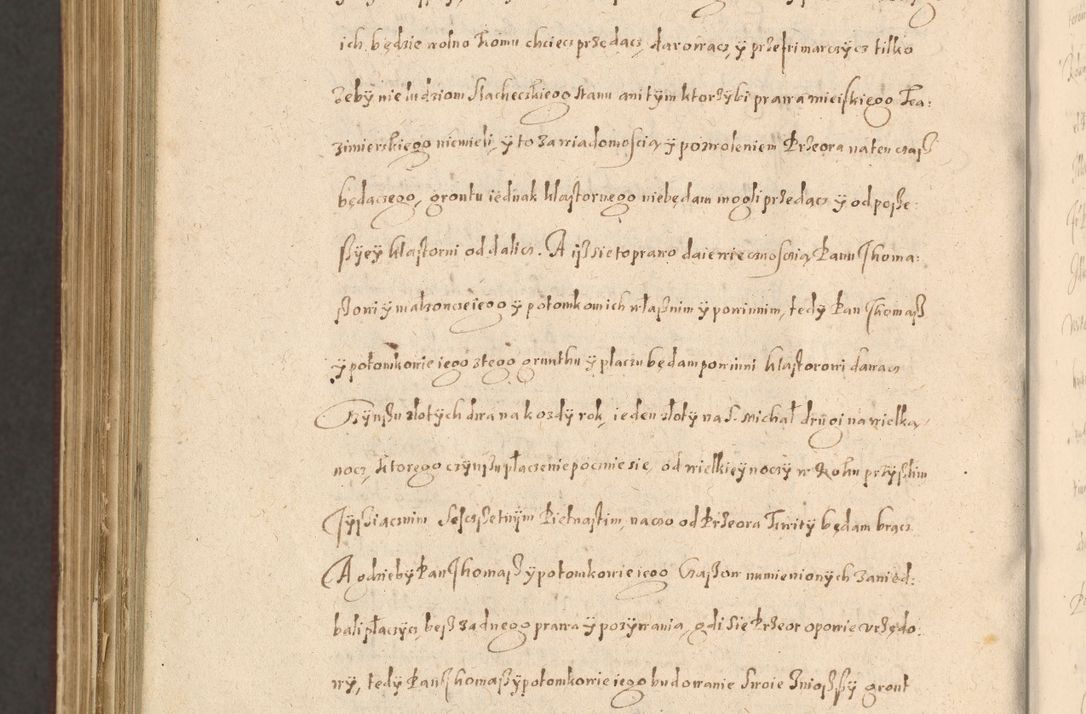 ich będzie wolno komu chciecz przedacz, darowacz, ÿ przefrimarczÿcz tilko
zebÿ nie ludziom Slacheczkiego stanu ani tÿm ktorzÿbi prawa mieiskiego Ka:
zimierskiego niemieli, ÿ to za wiadomoscią ÿ pozwoleniem Przeora na ten czasz
będaczego, gruntu iednak klastornego niebędam mogli przedacz ÿ od posze:
szÿeÿ klastorni oddalicz. A isz sie to prawo daie wiecznoscią Panu Thoma:
szowi ÿ malzoncze iego ÿ potomkom ich własznim ÿ powinnim, tedÿ Pan Thomasz
ÿ potomkowie iego z tego grunthu ÿ placzu będam powinni klastorowi dawacz
Czÿnszu złotÿch dwa na kozdÿ rok, ieden złotÿ na S. Michał drugi na wielką
nocz, ktorego czÿnszu płaczenie pocznie sie, od wielkieÿ noczÿ w Roku przÿszlim
Tÿsziącznim Seszczsetnÿm Pietnastim, na czo od Przeora kwitÿ będam bracz
A gdziebÿ Pan Thomasz ÿ potomkowie iego Czaszow numienionÿch zanied:
bali płaczÿcz besz zadnego prawa ÿ pozÿwania, gdi sie Przeor opowie vrzędo:
wÿ, tedÿ Pan Thomasz ÿ potomkowie iego budowanie swoie zniosszÿ grunt